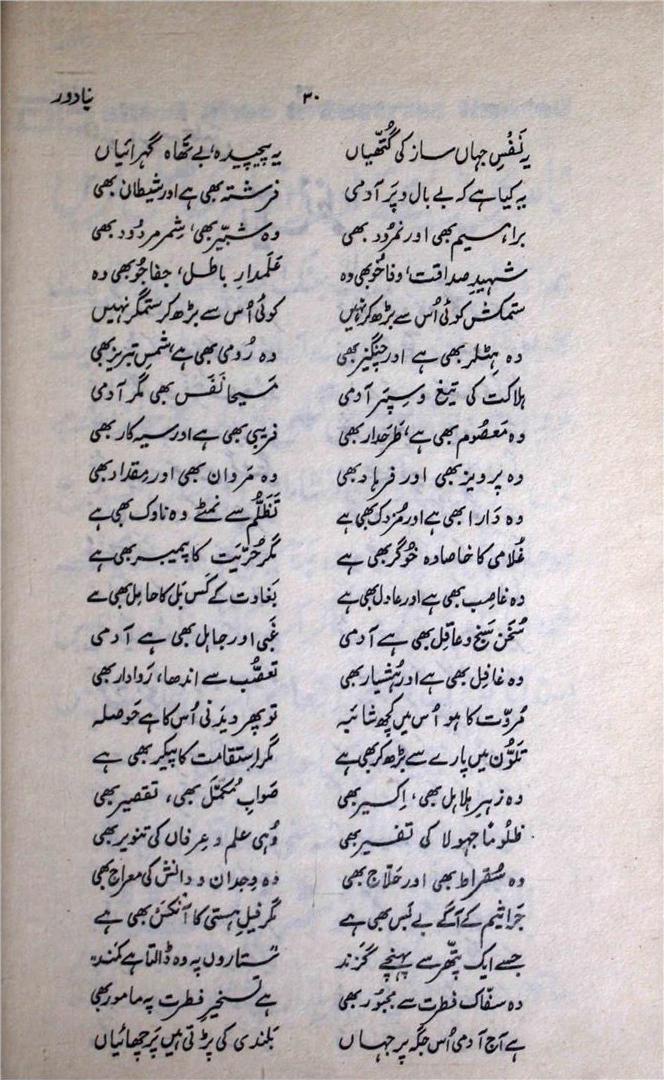 ۳۰ نیا دور
یہ نَفْسِ جہاں ساز کی گُتھّیاں یہ پیچیدہ، بے تھاہ گہرائیاں
یہ کیا ہے کہ بے بال و پَر آدمی فرشتہ بھی ہے اور شیطان بھی
براہیم بھی اور نمرُود بھی وہ شبیّر بھی، شِمر مردُود بھی
شہیدِ صداقت، وفا خُو بھی وہ عَلَمدارِ باطل، جفا جُو بھی وہ
ستمکش کوئی اُس سے بڑھ کر نہیں کوئی اُس سے بڑھ کر ستمگر نہیں
وہ ہٹلر بھی ہے اور چنگیز بھی وہ رُومی بھی ہے، شمسِ تبریز بھی
ہلاکت کی تیغ و سِپَر آدمی مَسیحا نَفَس بھی مگر آدمی
وہ مَعصُوم بھی ہے، طَرحدار بھی فریبی بھی ہے اور سیہ کار بھی
وہ پرویز بھی اور فرہاد بھی وہ مَردان بھی اور مِقداد بھی
وہ دَارا بھی ہے اور مُزدک بھی ہے تَظَلُّم سے نمٹے وہ ناوک بھی ہے
غُلامی کا خاصا وہ خُوگر بھی ہے مگر حُرّیَت کا پیمبر بھی ہے
وہ غاصِب بھی ہے اور عادل بھی ہے بَغاوت کے کَس بَل کا حامِل بھی ہے
سُخَن سَنج و عاقِل بھی ہے آدمی غَبی اور جاہل بھی ہے آدمی
وہ غافِل بھی ہے اور ہُشیار بھی تعصُّب سے اندھا، رَوادار بھی
مُروّت کا ہو اُس میں کچھ شائبہ تو پھر دیدنی اُس کا ہے حَوصلہ
تلوُّن میں پارے سے بڑھ کر بھی ہے مگر استقامت کا پیکر بھی ہے
وہ زہرِ ہلاہل بھی، اِکسیر بھی صَوابِ مُکمَّل بھی، تقصیر بھی
ظلُوماً جہولا کی تفسیر بھی وُہی علم و عِرفاں کی تنویر بھی
وہ سُقراط بھی اور حَلّاج بھی وہ وِجدان و دانش کی معراج بھی
جَراثیم کے آگے بے بَس بھی ہے مگر فیلِ ہستی کا آنکَس بھی ہے
جسے ایک پتھّر سے پہنچے گَزند ستاروں پہ وہ ڈالتا ہے کمند
وہ سفّاک فطرت سے مجبُور بھی ہے تسخیرِ فِطرت پہ مامور بھی
ہے آج آدمی اُس جگہ پر جہاں بلندی کی پڑتی ہیں پَرچھائیاں